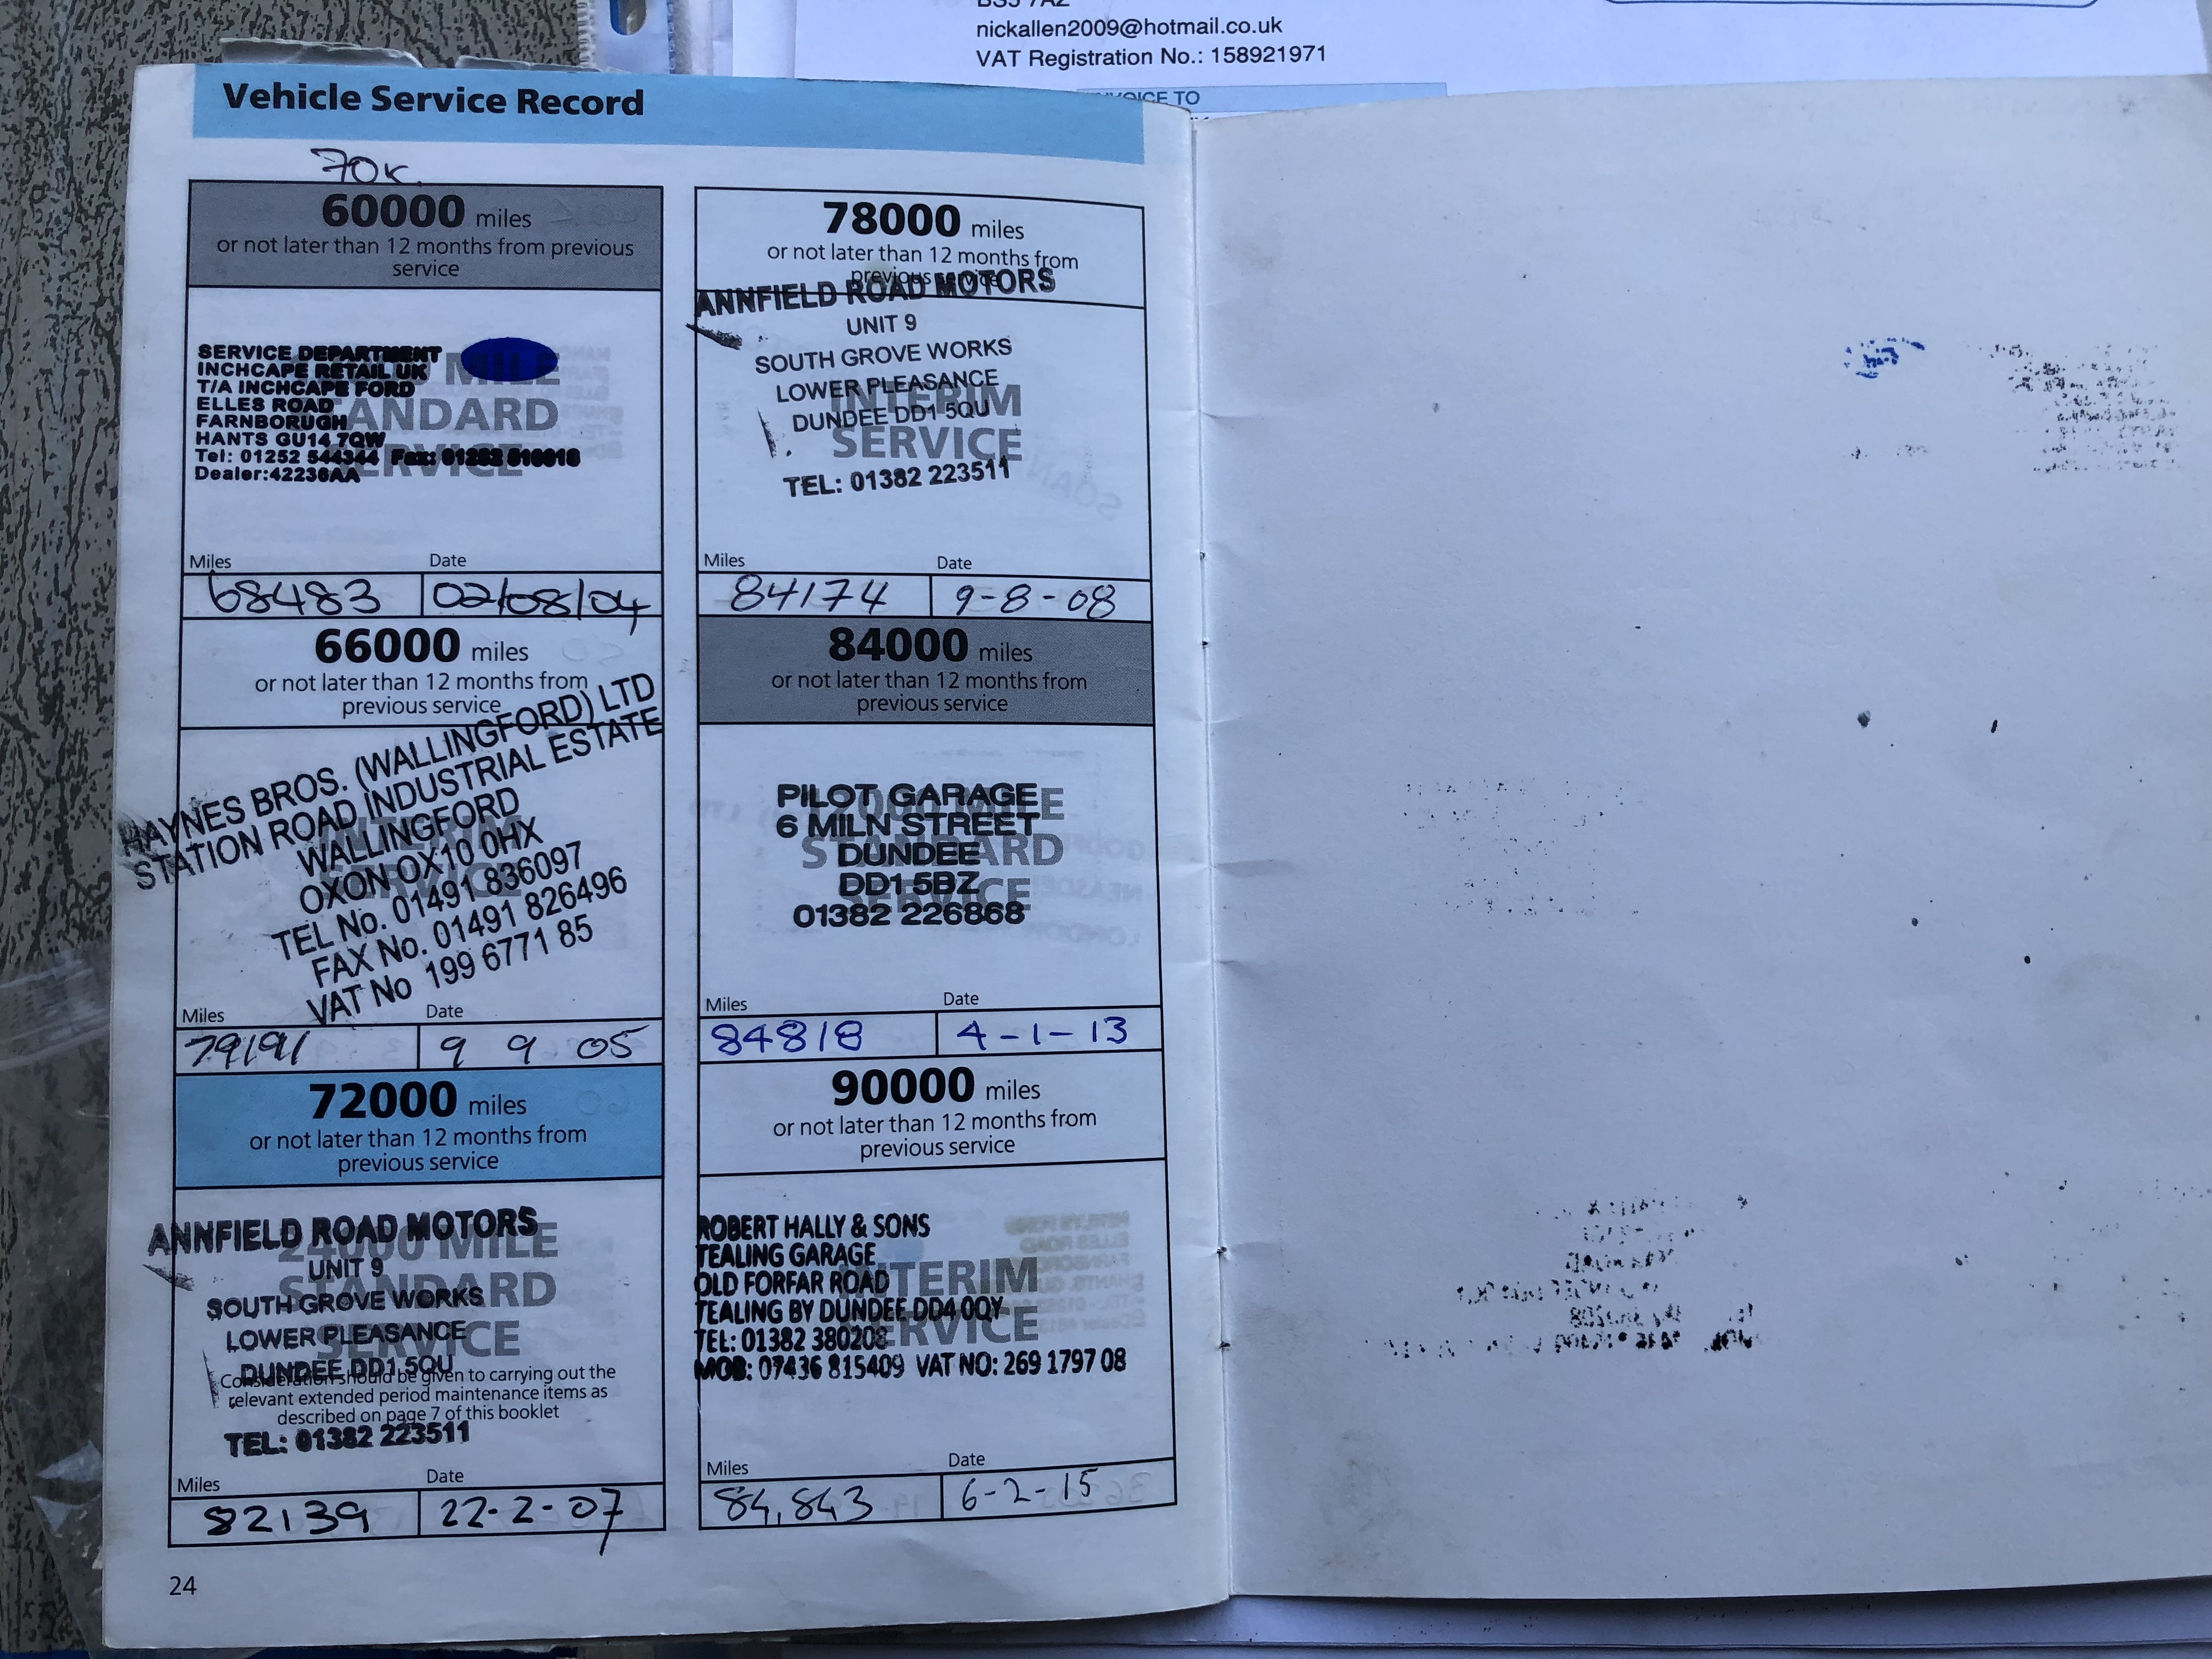 nickallen2009@hotmail.co.uk
VAT Registration No.: 158921971
OICE TO
Vehicle Service Record
70K
60000 miles
or not later than 12 months from previous
service
SERVICE DEPARTMENT
INCHCAPE RETAIL UK
T/A INCHCAPE FORD
ELLES ROAD
FARNBOROUGH
HANTS GU14 7QW
Tel: 01252 544344 Fax: 01252 510018
Dealer:42236AA
MILE
STANDARD
SERVICE
Miles Date
68483 02/08/04
66000 miles
or not later than 12 months from
previous service
HAYNES BROS. (WALLINGFORD) LTD
STATION ROAD INDUSTRIAL ESTATE
WALLINGFORD
OXON OX10 0HX
TEL No. 01491 836097
FAX No. 01491 826496
VAT No 199 6771 85
INTERIM
SERVICE
Miles Date
79191 9 9 05
72000 miles
or not later than 12 months from
previous service
ANNFIELD ROAD MOTORS
UNIT 9
SOUTH GROVE WORKS
LOWER PLEASANCE
DUNDEE DD1 5QU
TEL: 01382 223511
24000 MILE
STANDARD
SERVICE
Consideration should be given to carrying out the
relevant extended period maintenance items as
described on page 7 of this booklet
Miles Date
82139 22-2-07
78000 miles
or not later than 12 months from
previous service
ANNFIELD ROAD MOTORS
UNIT 9
SOUTH GROVE WORKS
LOWER PLEASANCE
DUNDEE DD1 5QU
TEL: 01382 223511
INTERIM
SERVICE
Miles Date
84174 9-8-08
84000 miles
or not later than 12 months from
previous service
PILOT GARAGE
6 MILN STREET
DUNDEE
DD1 5BZ
01382 226868
MILE
STANDARD
SERVICE
Miles Date
84818 4-1-13
90000 miles
or not later than 12 months from
previous service
ROBERT HALLY & SONS
TEALING GARAGE
OLD FORFAR ROAD
TEALING BY DUNDEE DD4 0QY
TEL: 01382 380208
MOB: 07436 815409 VAT NO: 269 1797 08
INTERIM
SERVICE
Miles Date
84,843 6-2-15
24